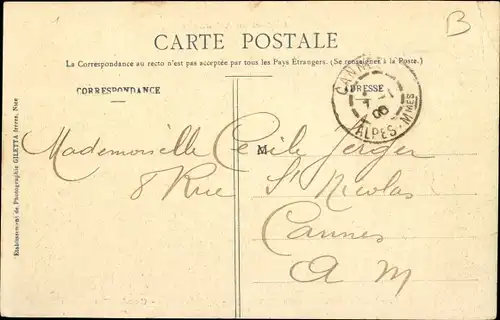 B
CARTE POSTALE
La Correspondance au recto n'est pas acceptée par tous les Pays Étrangers. (Se renseigner à la Poste.)
CORRESPONDANCE
ADRESSE
CANNES
ALPES-Mmes
M
Mademoiselle Cécile Jerger
8 Rue St Nicolas
Cannes
A M
Etablissement de Photographie GILETTA frères, Nice